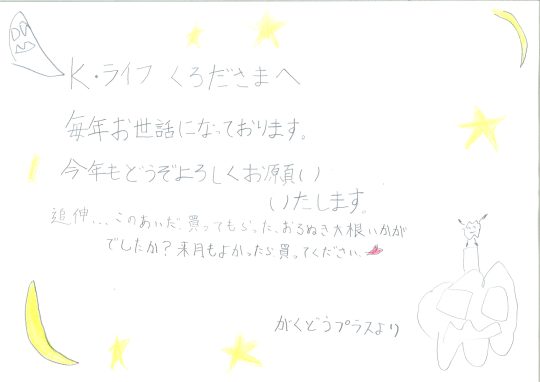 K・ライフ くろださまへ
毎年お世話になっております。
今年もどうぞよろしくお願い
いたします。
追伸...このあいだ買ってもらった、おろぬき大根いかが
でしたか？来月もよかったら買ってください。
がくどうプラスより